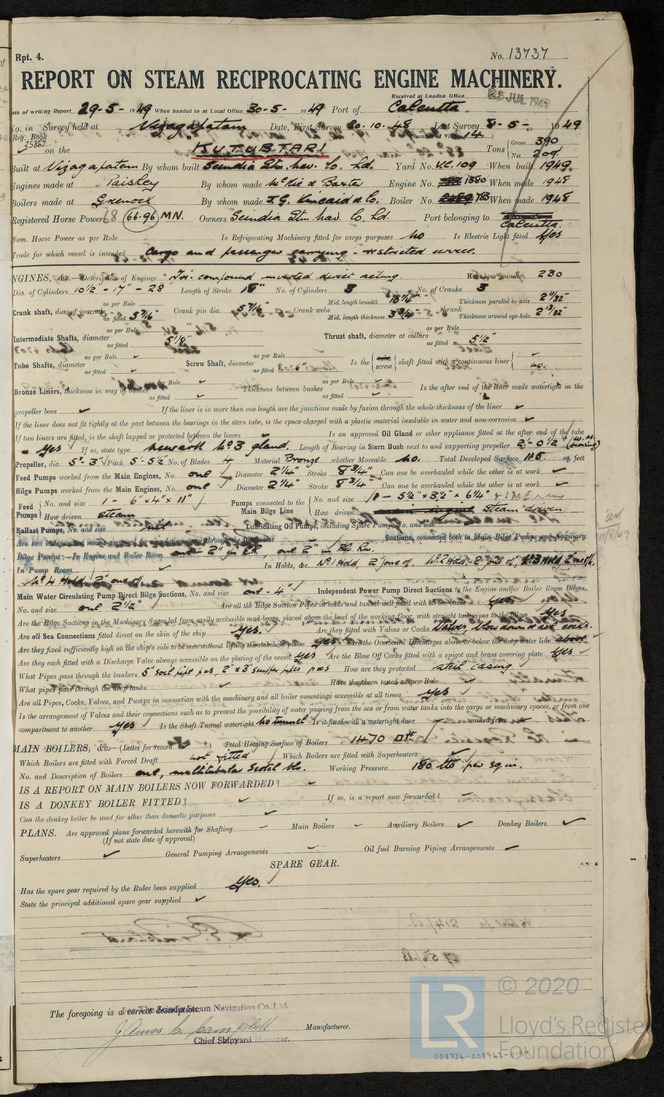 Rpt. 4.
No. 13737
REPORT ON STEAM RECIPROCATING ENGINE MACHINERY.
Received at London Office
25 JUL 1949
Date of writing Report 29-5-1949 When handed in at Local Office 30-5-1949 Port of Calcutta
No. in Survey held at Vizagapatam Date, First Survey 20.10.48 Last Survey 8-5-1949
Reg. Book
on the KUTUBTARI Tons Gross 390 Net 209
Built at Vizagapatam By whom built Scindia Stm. Nav. Co. Ld. Yard No. VC.109 When built 1949
Engines made at Paisley By whom made McKie & Baxter Engine No. 1380 When made 1948
Boilers made at Greenock By whom made J.G. Kincaid & Co. Boiler No. When made 1948
Registered Horse Power 68 (66.96) MN. Owners Scindia Stm. Nav. Co. Ld. Port belonging to Calcutta
Nom. Horse Power as per Rule Is Refrigerating Machinery fitted for cargo purposes No Is Electric Light fitted Yes
Trade for which vessel is intended Cargo and passenger carrying - restricted service.
ENGINES, &c. Description of Engines Tri-compound inverted direct acting Revs. per minute 230
Dia. of Cylinders 10½"-17"-28" Length of Stroke 18" No. of Cylinders 3 No. of Cranks 3
Crank shaft, dia. of journals as per Rule as fitted 5 7/16" Crank pin dia. 5 7/16" Crank webs Mid. length breadth Mid. length thickness Thickness parallel to axis Thickness around eye-hole
Intermediate Shafts, diameter as per Rule as fitted 5 1/8" Thrust shaft, diameter at collars as per Rule as fitted 5½"
Tube Shafts, diameter as per Rule as fitted Screw Shaft, diameter as per Rule as fitted 6" Is the screw shaft fitted with continuous liner No.
Bronze Liners, thickness in way of bushes as per Rule as fitted Thickness between bushes as per Rule as fitted Is the after end of the liner made watertight in the
propeller boss If the liner is in more than one length are the junctions made by fusion through the whole thickness of the liner
If the liner does not fit tightly at the part between the bearings in the stern tube, is the space charged with a plastic material insoluble in water and non-corrosive
If two liners are fitted, is the shaft lapped or protected between the liners Is an approved Oil Gland or other appliance fitted at the after end of the tube
Yes If so, state type Newark No 3 gland. Length of Bearing in Stern Bush next to and supporting propeller 2'-0½"
Propeller, dia. 5'-3" Pitch 5'-5½" No. of Blades 4 Material Bronze whether Moveable No. Total Developed Surface 11.5 sq. feet
Feed Pumps worked from the Main Engines, No. one Diameter 2¼" Stroke 8¾" Can one be overhauled while the other is at work
Bilge Pumps worked from the Main Engines, No. one Diameter 2¼" Stroke 8¾" Can one be overhauled while the other is at work
Feed Pumps No. and size 1 - 6"x4"x11" How driven Steam Pumps connected to the Main Bilge Line No. and size How driven Steam driven
Ballast Pumps, No. and size Lubricating Oil Pumps, including Spare Pump, No. and size
Bilge Pumps;—In Engine and Boiler Room one 2" in ER one 2" in
In Pump Room In Holds, &c. No 1 Hold, 2" one of.
No 4 Hold 2" one of
Main Water Circulating Pump Direct Bilge Suctions, No. and size one - 4" Independent Power Pump Direct Suctions to the Engine and/or Boiler Room Bilges,
No. and size one 2½" Are all the Bilge Suction Pipes in holds and tunnel well fitted with strum-boxes Yes
Are the Bilge Suctions in the Machinery Spaces led from easily accessible mud boxes, placed above the level of the working floor, with straight tail pipes to the bilges Yes
Are all Sea Connections fitted direct on the skin of the ship Yes. Are they fitted with Valves or Cocks
Are they fixed sufficiently high on the ship's side to be seen without lifting the platform plates Yes Are the Overboard Discharges above or below the deep water line above.
Are they each fitted with a Discharge Valve always accessible on the plating of the vessel Yes Are the Blow Off Cocks fitted with a spigot and brass covering plate Yes
What Pipes pass through the bunkers How are they protected steel casing
What pipes pass through the deep tanks Have they been tested as per Rule
Are all Pipes, Cocks, Valves, and Pumps in connection with the machinery and all boiler mountings accessible at all times Yes
Is the arrangement of Valves and their connections such as to prevent the possibility of water passing from the sea or from water tanks into the cargo or machinery spaces, or from one
compartment to another Yes Is the Shaft Tunnel watertight No tunnel Is it fitted with a watertight door worked from
MAIN BOILERS, &c.—(Letter for record S) Total Heating Surface of Boilers 1470 □ft.
Which Boilers are fitted with Forced Draft not fitted Which Boilers are fitted with Superheaters
No. and Description of Boilers one, multitubular Scotch Working Pressure 180 lbs per sq. in.
IS A REPORT ON MAIN BOILERS NOW FORWARDED?
IS A DONKEY BOILER FITTED? If so, is a report now forwarded?
Can the donkey boiler be used for other than domestic purposes
PLANS. Are approved plans forwarded herewith for Shafting Main Boilers Auxiliary Boilers Donkey Boilers
(If not state date of approval)
Superheaters General Pumping Arrangements Oil fuel Burning Piping Arrangements
SPARE GEAR.
Has the spare gear required by the Rules been supplied Yes.
State the principal additional spare gear supplied
For The Scindia Steam Navigation Co. Ltd.
The foregoing is a correct description.
James C. Campbell Manufacturer.
Chief Shipyard Manager.
LR
© 2020
Lloyd's Register
Foundation